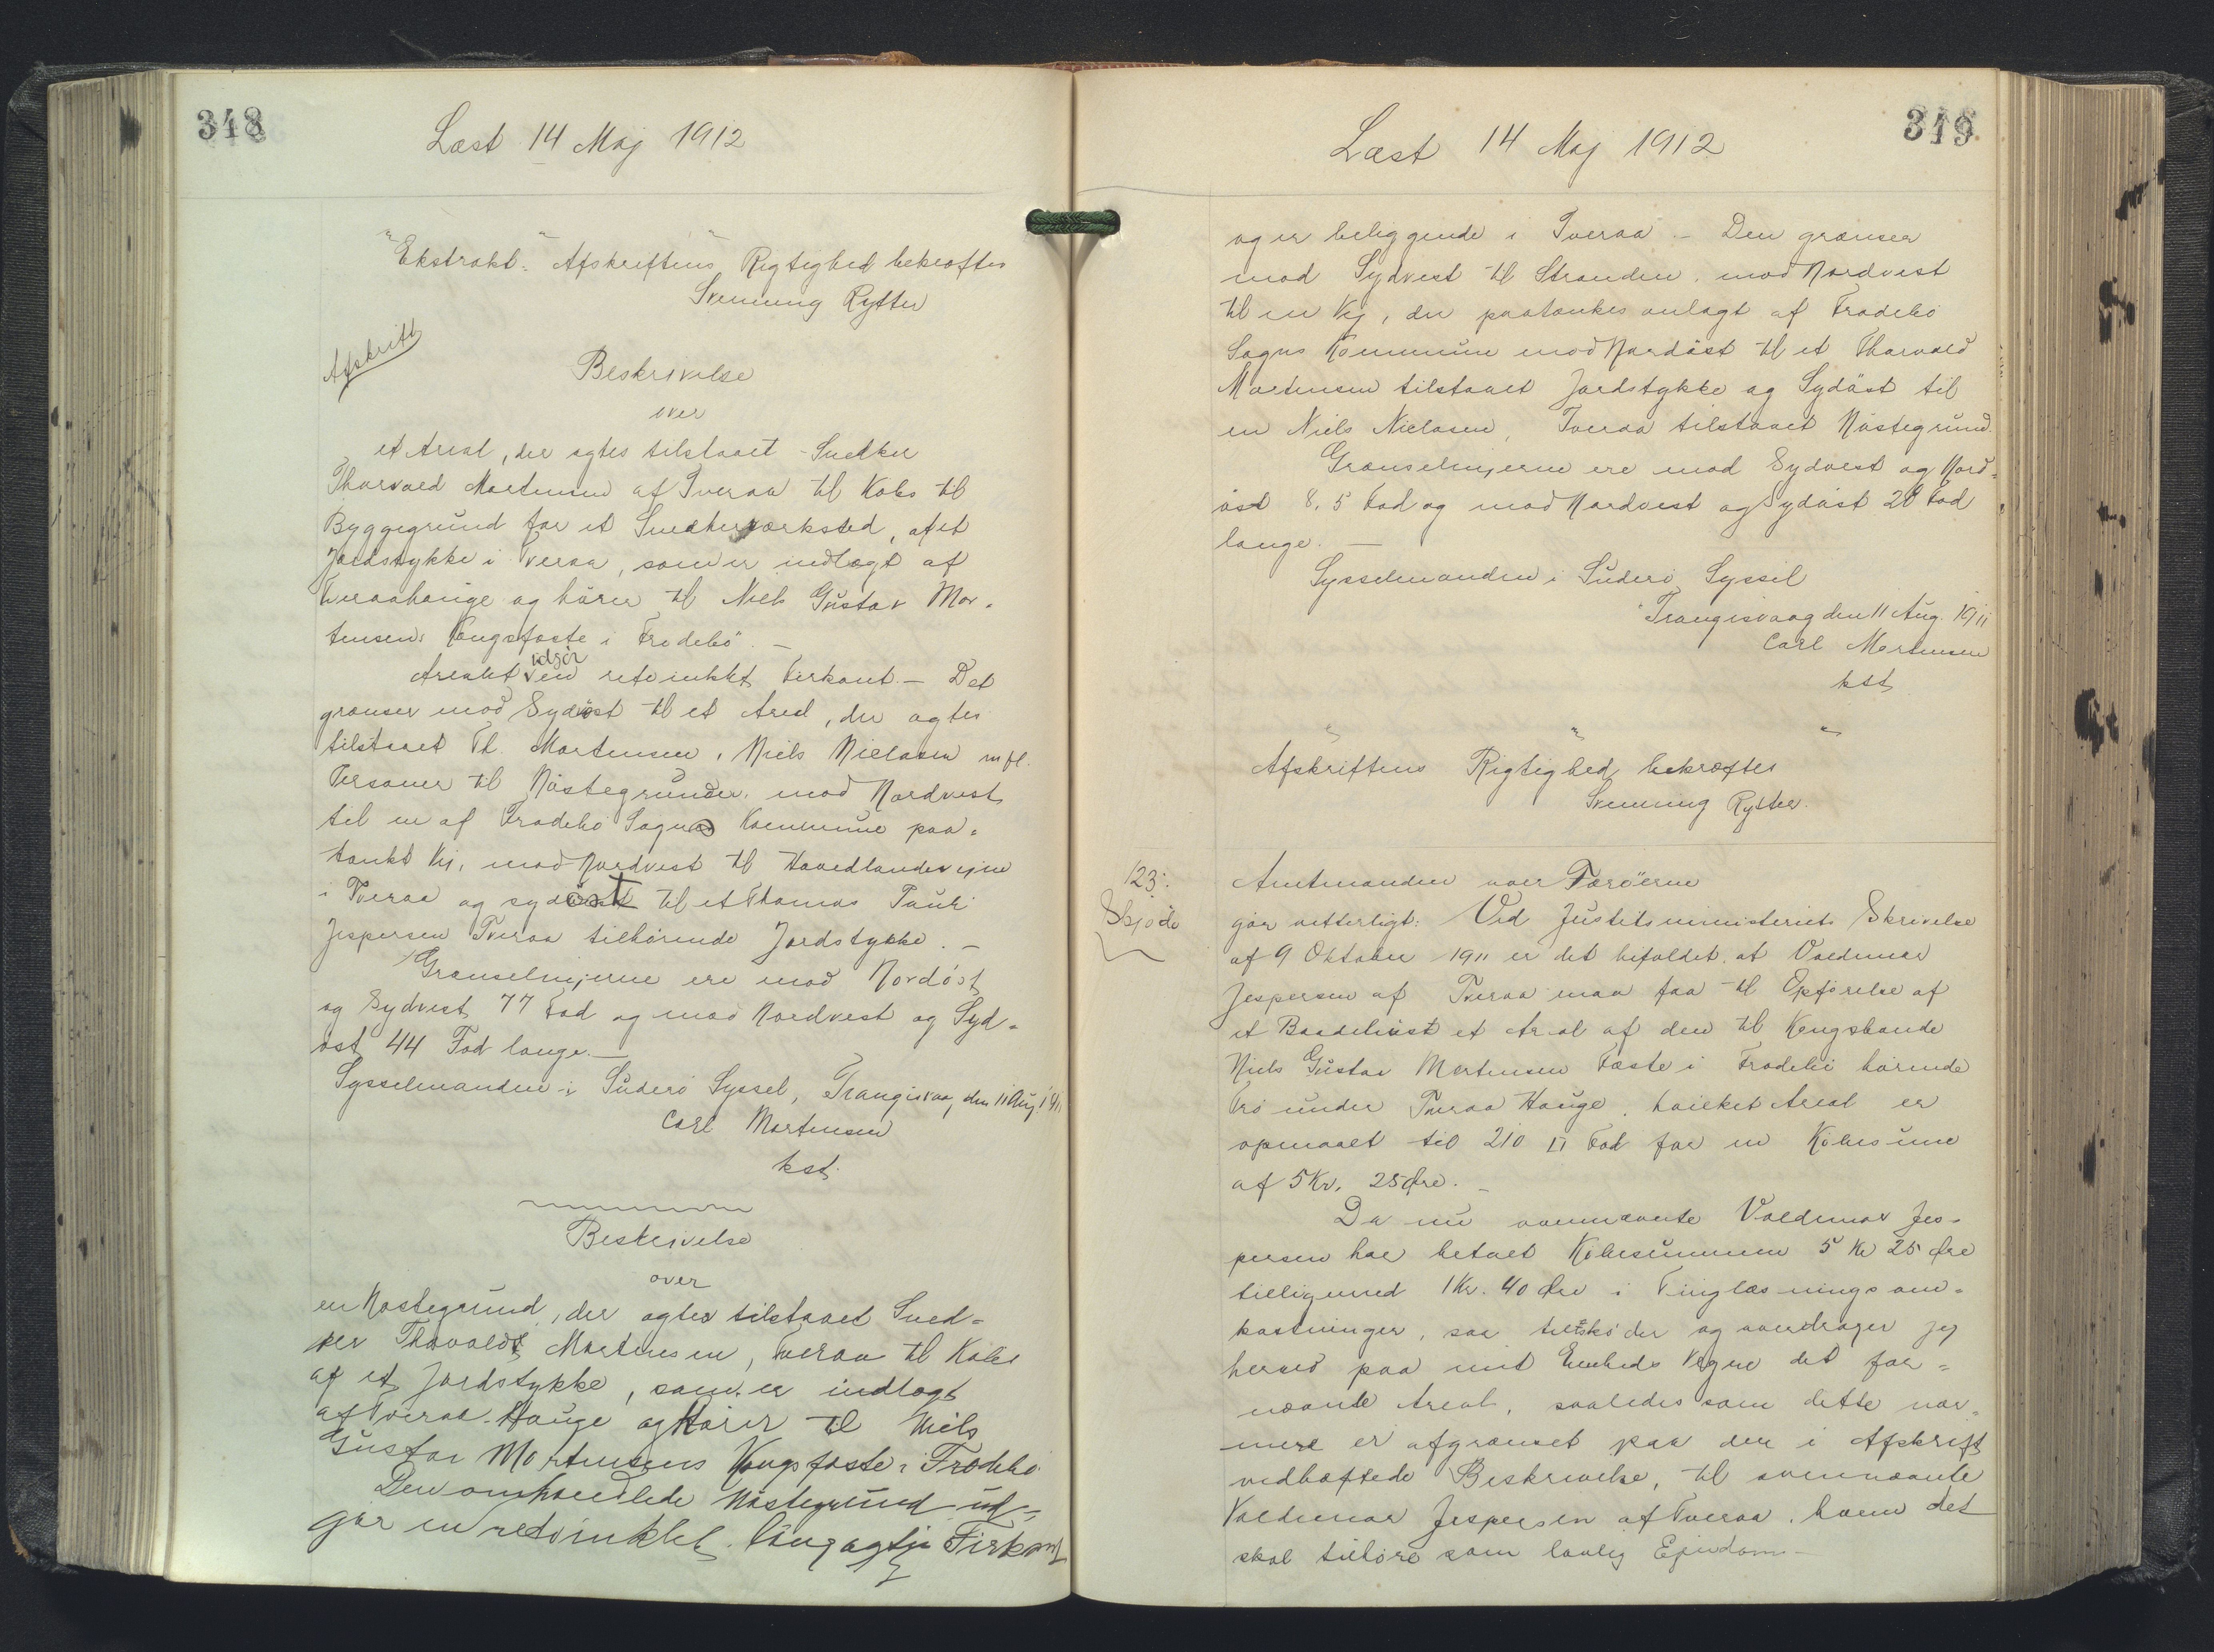 348
Læst 14 Maj 1912
"Ekstrakt". Afskriftens Rigtighed bekræftes
Svenning Rytter
Afskrift
Beskrivelse
over
et Areal, der agtes tilstaaet Snedker
Thorvald Mortensen af Tveraa til Købs til
Byggegrund for et Snedkerværksted, af et
Jordstykke i Tveraa, som er indlagt af
Tveraahauge og hører til Niels Gustav Mor-
tensens Kongsfæste i Frodebø. —
Arealet udgør en retvinklet Firkant. — Det
grænser mod Sydvest til et Areal, der agtes
tilstaaet Th. Mortensen, Niels Nielsen mfl.
Personer til Nøstegrunder, mod Nordvest
til en af Frodebø Sogns Kommune paa-
tænkt Vej, mod Nordvest til Hovedlandevejene
i Tveraa og sydøst til et Thomas Pauli
Jespersen Tveraa tilhørende Jordstykke. —
Grænselinjerne ere mod Nordøst
og Sydvest 77 Fod og mod Nordvest og Syd-
øst 44 Fod lange. —
Sysselmanden i Suderø Syssel, Trangisvaag den 11 Aug. 1911
Carl Mortensen
kst.
Beskrivelse
over
en Nøstegrund, der agtes tilstaaet Sned-
ker Thovald Mortensen, Tveraa til Købs
af et Jordstykke, som er indlagt
af Tveraa Hauge og Hører til Niels
Gustav Mortensens Kongsfæste i Frodebø.
Den omhandlede Nøstegrund ud-
gør en retvinklet langagtig Firkant
319
Læst 14 Maj 1912
og er beliggende i Tveraa — Den grænser
mod Sydvest til Stranden, mod Nordvest
til en Vej, der paatænkes anlagt af Frodebø
Sogns Kommune mod Nordøst til et Thorvald
Mortensen tilstaaet Jordstykke og Sydøst til
en Niels Nielsen, Tveraa tilstaaet Nøstegrund.
Grænselinjerne ere mod Sydvest og Nord-
øst 8,5 Fod og mod Nordvest og Sydøst 28 Fod
lange. —
Sysselmanden i Suderø Syssel
Trangisvaag den 11 Aug. 1911
Carl Mortensen
kst
Afskriftens Rigtighed bekræftes
Svenning Rytter.
123.
Skjøde
Amtmanden over Færøerne
gør vitterligt: Ved Justitsministeriets Skrivelse
af 9 Oktober 1911 er det bifaldet, at Valdemar
Jespersen af Tveraa maa faa til Opførelse af
et Baadehust et Areal af den til Kongsbonde
Niels Gustav Mortensen Fæste i Frodebø hørende
Trø under Tveraa Hauge, hvilket Areal er
opmaalt til 210 □ Fod for en Købesum
af 5 Kr. 25 Øre. —
Da nu ovennævnte Valdemar Jes-
persen har betalt Købesummen 5 Kr 25 Øre
tilligemed 1 Kr. 40 Øre i Tinglæsningsom-
kostninger, saa tilskøder og overdrager jeg
herved paa mit Embeds Vegne det for-
nævnte Areal, saaledes som dette nær-
mere er afgrænset paa den i Afskrift
vedhæftede Beskrivelse, til ovennævnte
Valdemar Jespersen af Tveraa, hvem det
skal tilhøre som lovlig Ejendom —